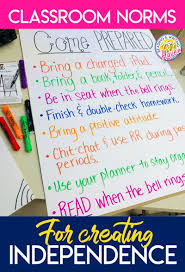 CLASSROOM NORMS
Come PREPARED
Bring a charged iPad.
Bring a book, folder, & pencil
Be in seat when the bell rings.
Finish & double-check homework...
Bring a positive attitude.
Chit-chat & use RR during
periods.
Use your planner to stay
READ when the bell rings
For creating
INDEPENDENCE